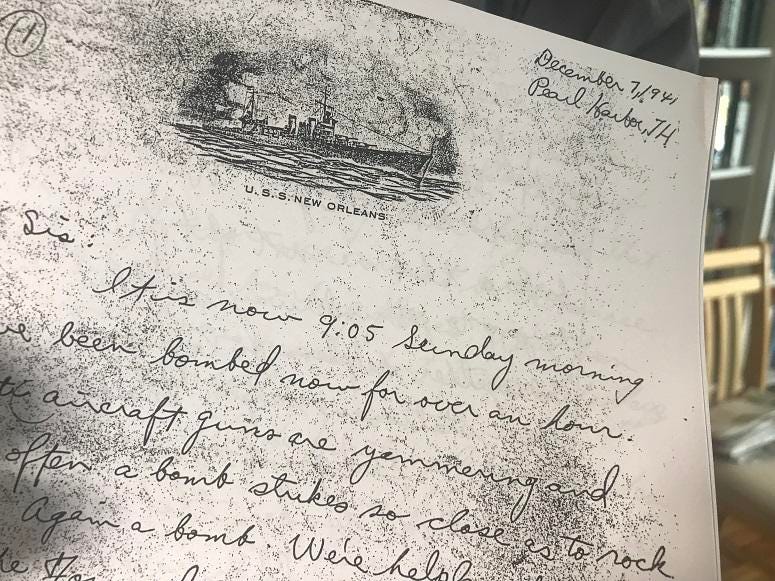 December 7, 1941
Pearl Harbor, TH
U.S.S. NEW ORLEANS
Sis:
It is now 9:05 Sunday morning
ve been bombed now for over an hour.
aircraft guns are yammering and
often a bomb strikes so close as to rock
Again a bomb. We're help